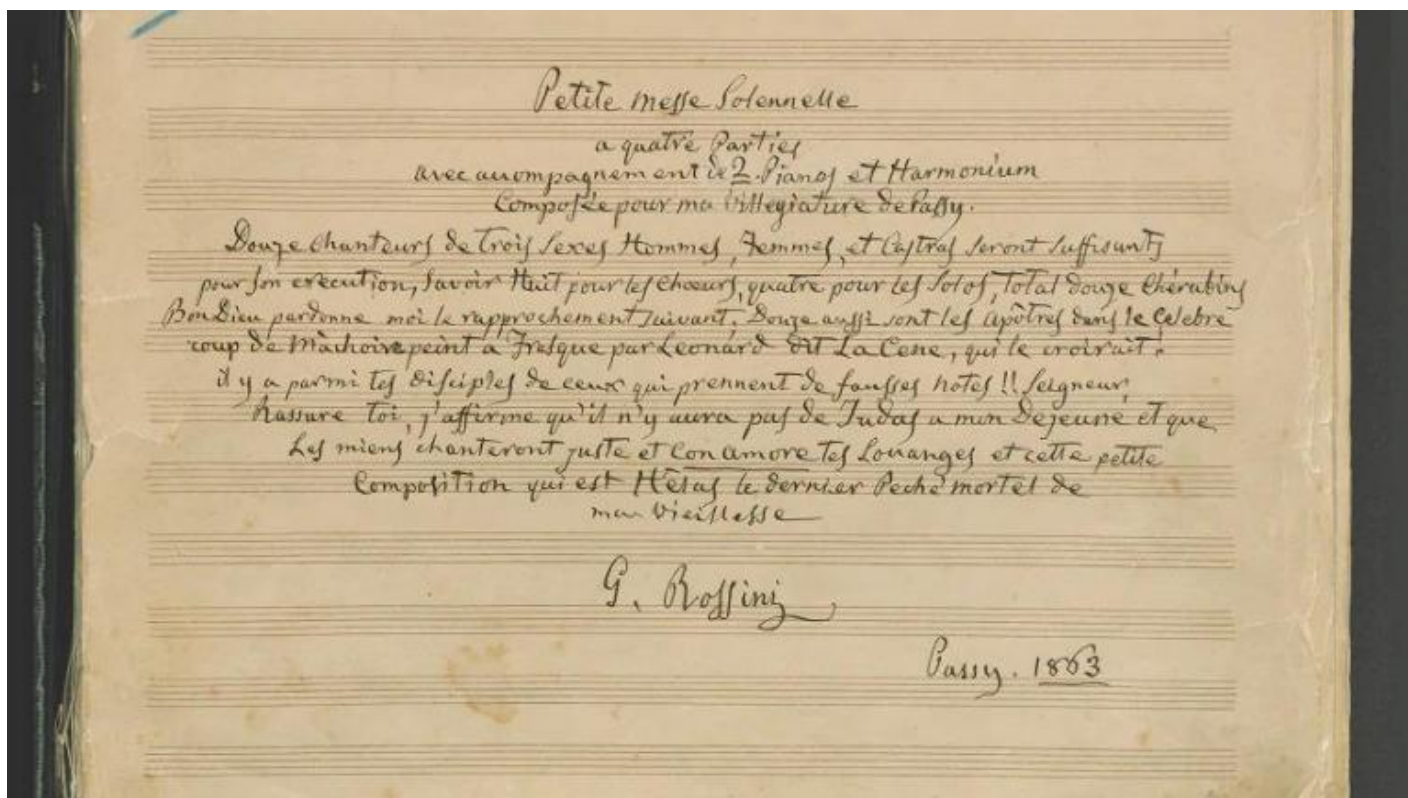 Petite messe Solennelle
a quatre Parties
avec accompagnement de 2 Pianos et Harmonium
Composée pour ma Villegiature de Passy.
Douze Chanteurs de trois Sexes Hommes, Femmes, et Castras seront suffisants
pour son execution, Savoir Huit pour les Choeurs, quatre pour les Solos, total douze Chérubins
Bon Dieu pardonne moi le rapprochement suivant. Douze aussi sont les Apôtres dans le Celebre
coup de Mâchoire peint a Fresque par Leonard dit La Cene, qui le croirait.
il y a parmi tes disciples de ceux qui prennent de fausses notes!! Seigneur,
Rassure toi, j'affirme qu'il n'y aura pas de Judas a mon Dejeuné et que
Les miens chanteront juste et Con amore tes Louanges et cette petite
Composition qui est Hèlas le dernier Peché mortel de
ma Vieillesse
G. Rossini
Passy. 1863